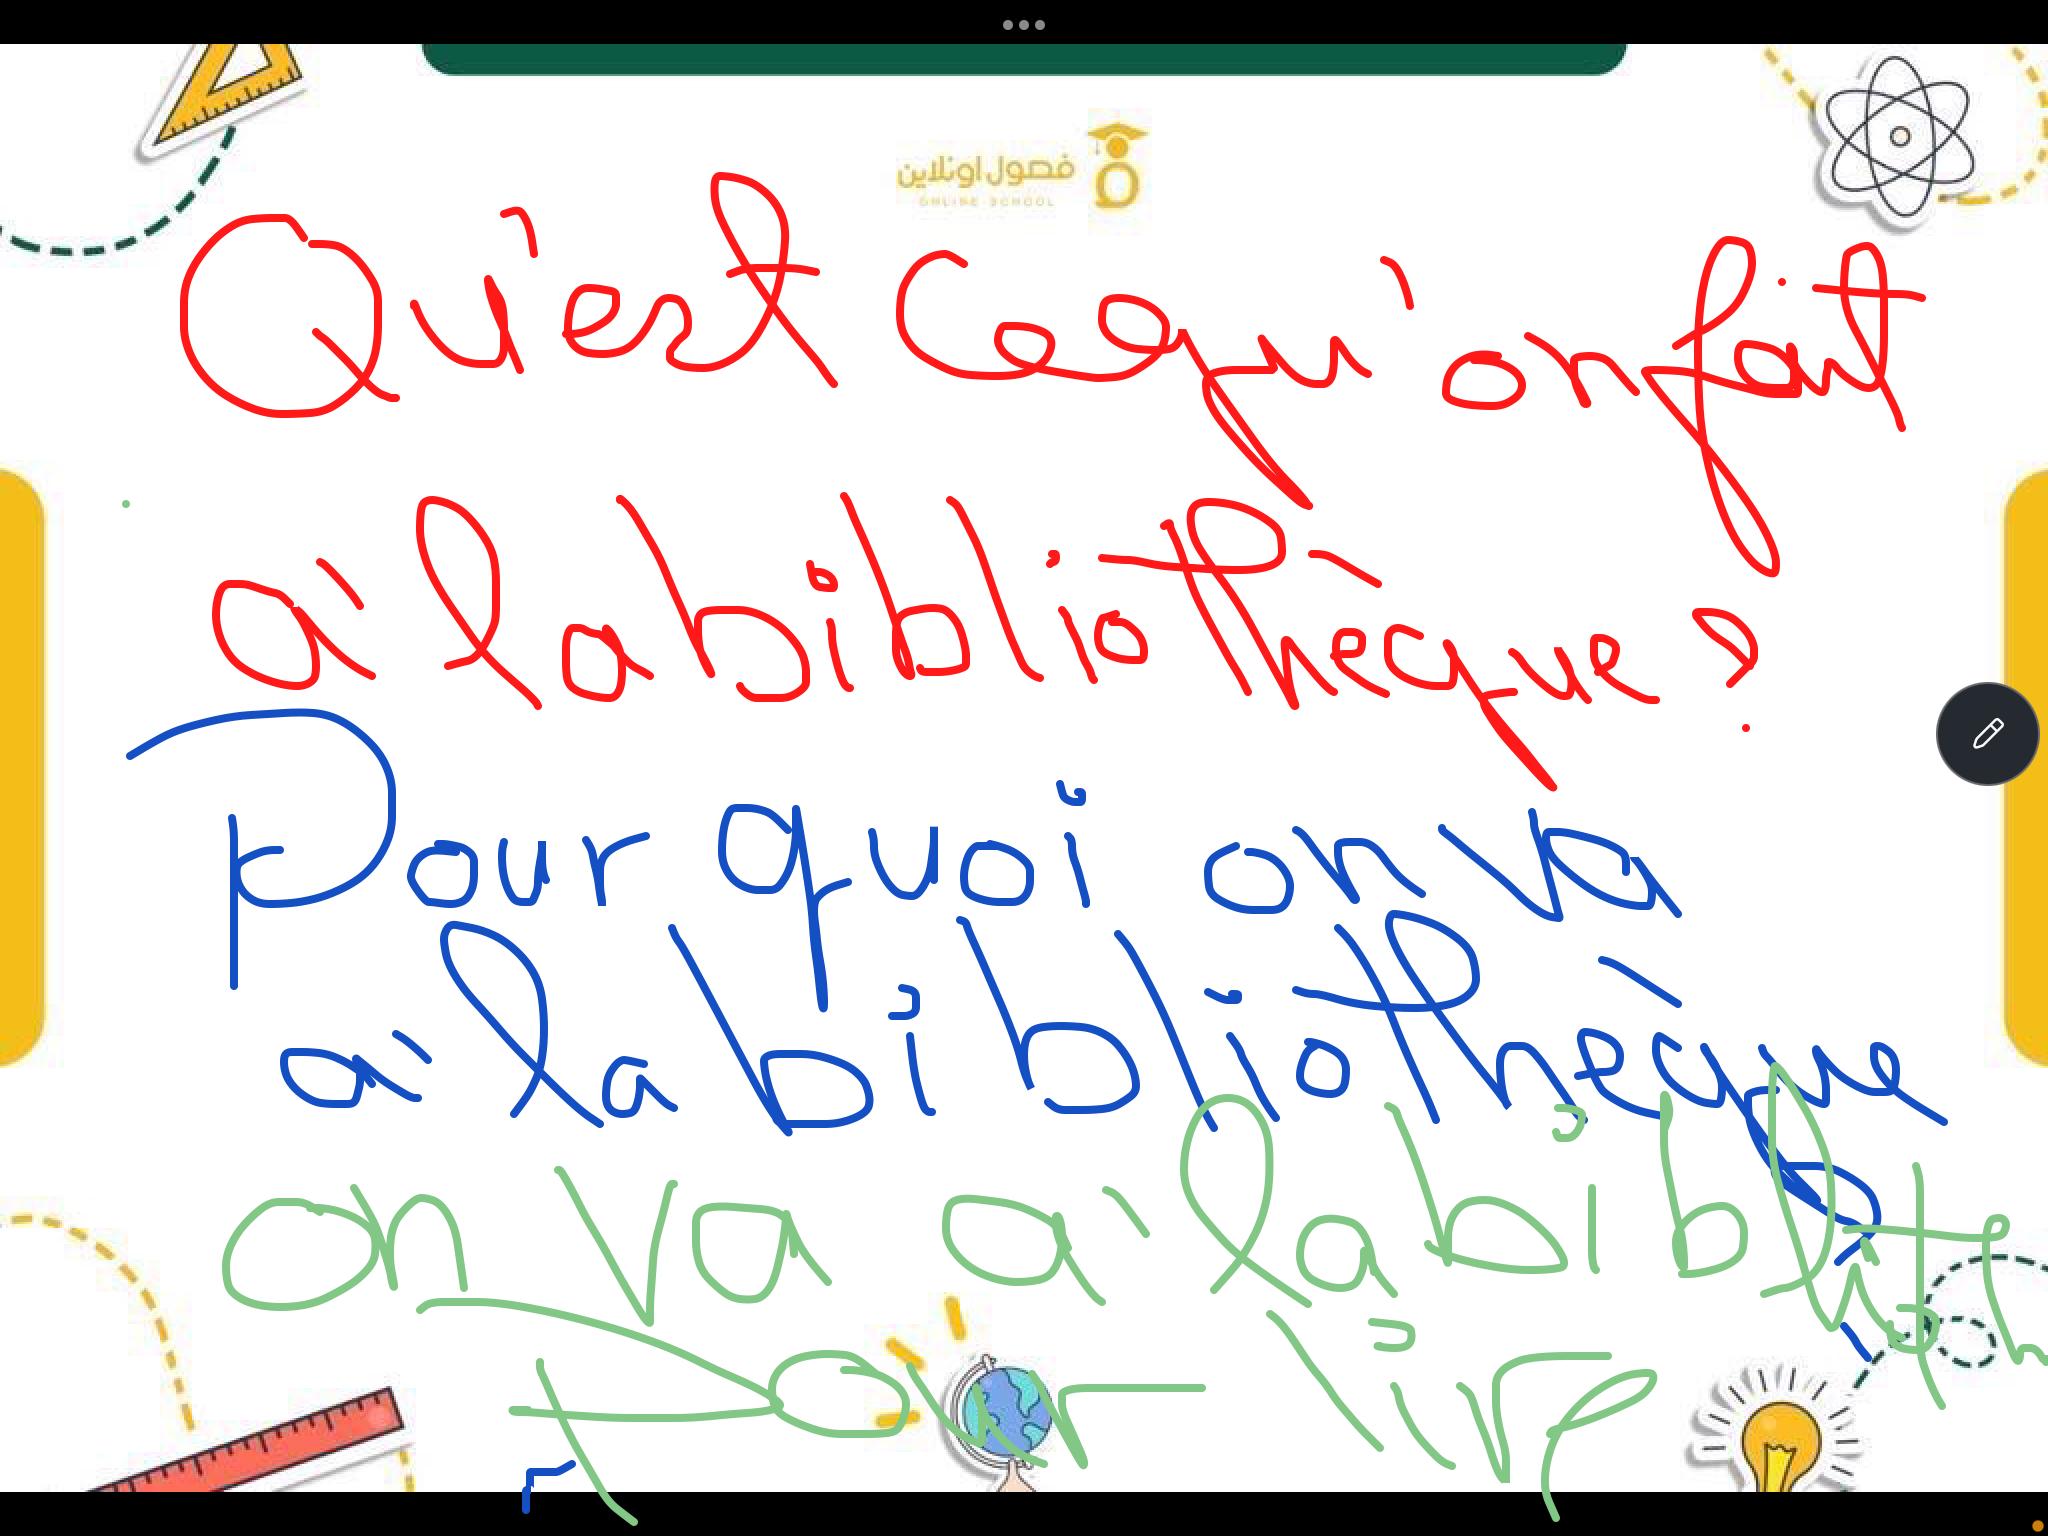 فصول اونلاين
ONLINE SCHOOL
Qu'est ce qu'on fait
à la bibliothèque ?
Pour quoi on va
à la bibliothèque
on va à la biblioth
Pour lire